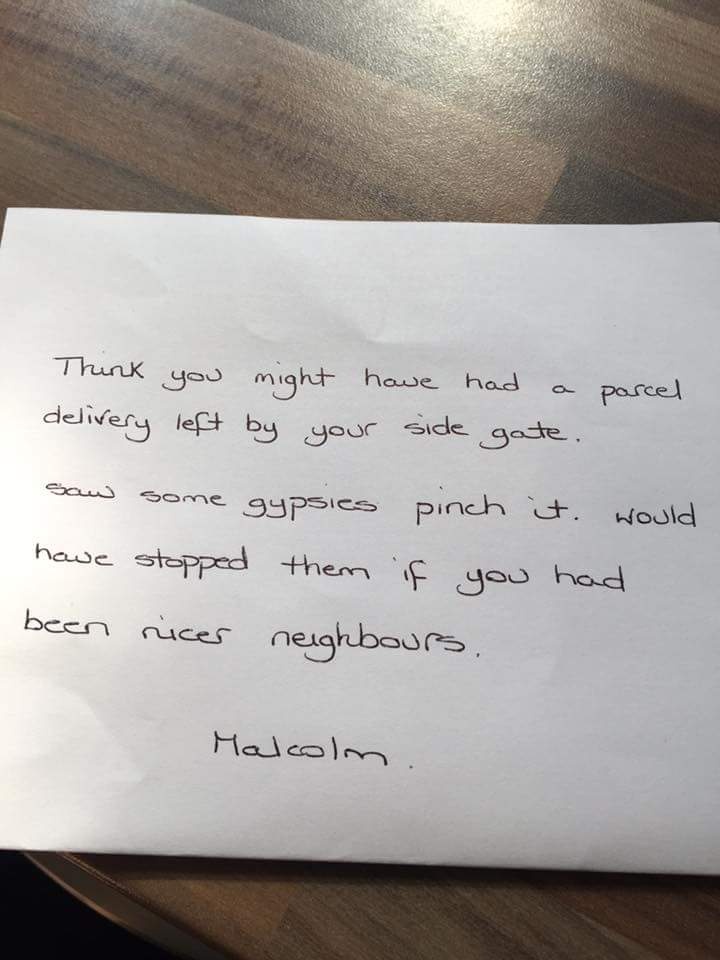 Think you might have had a parcel
delivery left by your side gate.
saw some gypsies pinch it. would
have stopped them if you had
been nicer neighbours.
Malcolm.